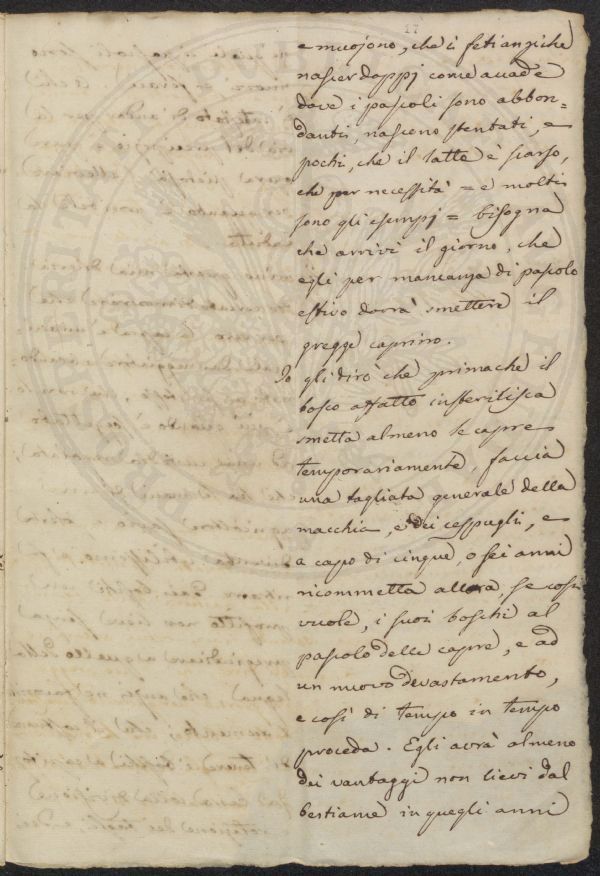 17
e muojono, che i feti anziche
nascer doppj come accade
dove i pascoli sono abbon=
danti, nascono stentati, e
pochi, che il latte è scarso,
che per necessità = e molti
sono gli esempj = bisogna
che arrivi il giorno, che
egli per mancanza di pascolo
estivo dovrà smettere il
gregge caprino.
Io gli dirò che prima che il
bosco affatto insterilisca
smetta almeno le capre
temporariamente, faccia
una tagliata generale della
macchia, e dei cespugli, e
a capo di cinque, o sei anni
ricommetta allora, se così
vuole, i suoi boschi al
pascolo delle capre, e ad
un nuovo devastamento,
e così di tempo in tempo
proceda. Egli avrà almeno
dei vantaggi non lievi dal
bestiame in quegli anni